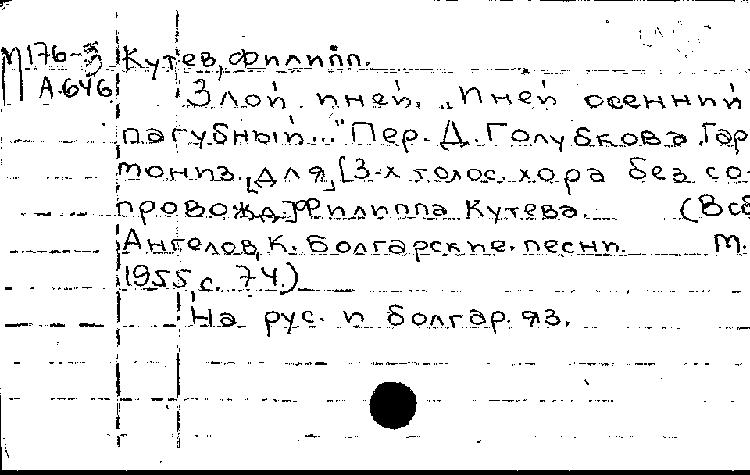 М176-3 Кутев, Филипп.
А.646
Злой иней. „Иней осенний
пагубный..." Пер. Д. Голубкова. Гар
мониз. [для] [3-х голос. хора без со-
провожд.] Филиппа Кутева. (Всб
Ангелов, К. Болгарские песни. М.
1955 с. 74.)
На рус. и болгар. яз.